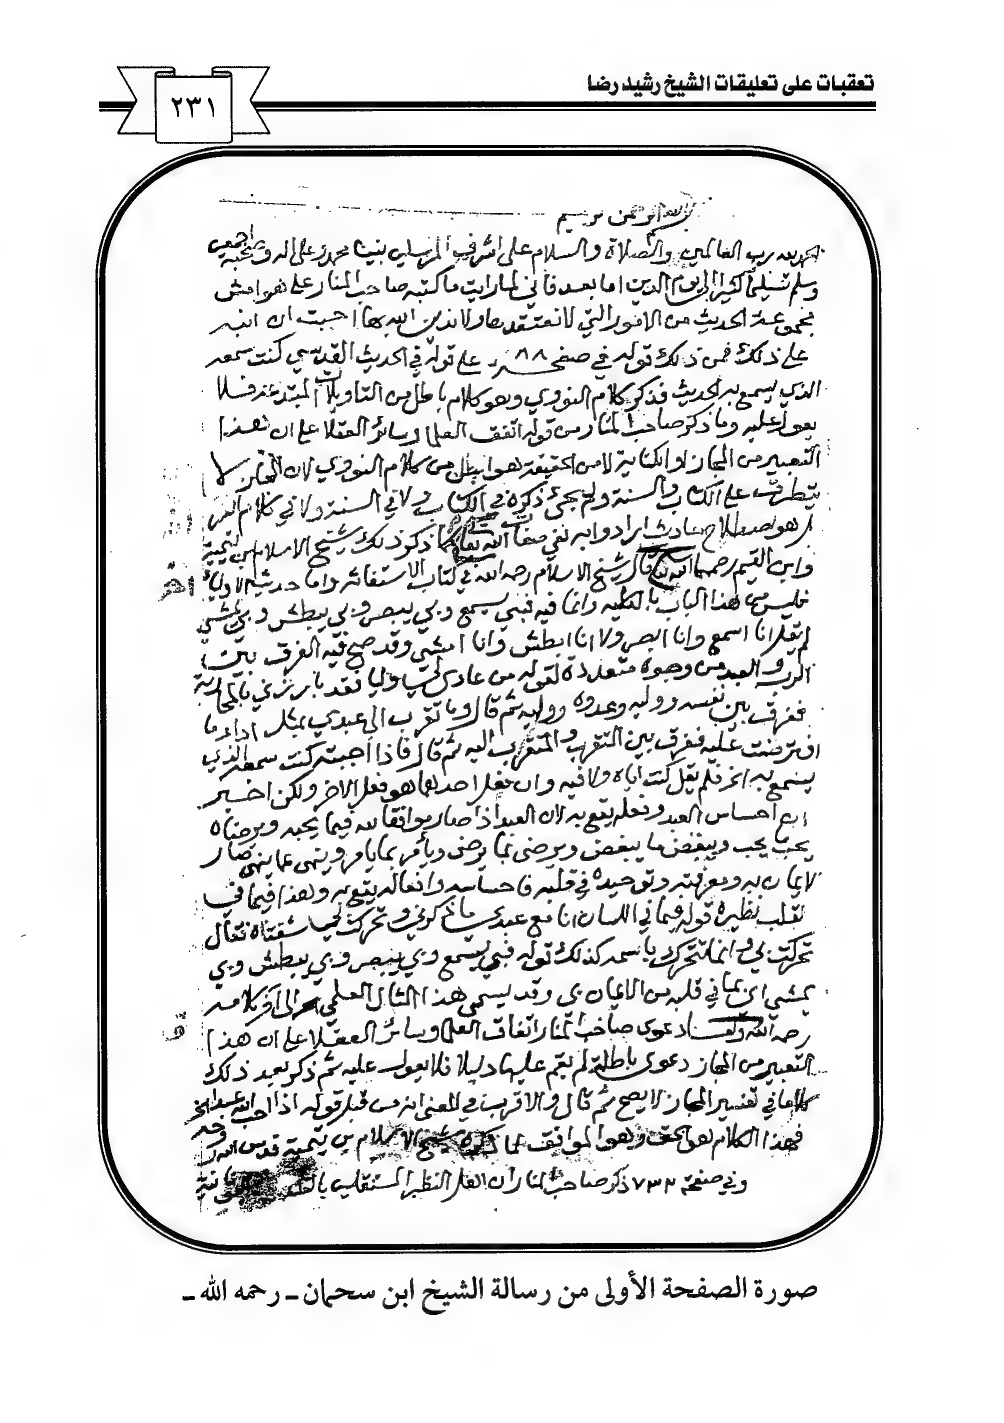 تعقبات على تعليقات الشيخ رشيد رضا
٢٣١
بسم الله الرحمن الرحيم
الحمد لله رب العالمين والصلاة والسلام على اشرف المرسلين نبينا محمد وعلى اله وصحبه اجمعين
وسلم تسليما كثيرا الى يوم الدين اما بعد فاني لما رايت ما كتبه صاحب المنار على هوامش
مجموعة الحديث من الامور التي لا نعتقدها ولا ندين الله بها احببت ان انبه
على ذلك فمن ذلك قوله في صفحة ٨٨ على قوله في الحديث القدسي كنت سمعه
الذي يسمع به الحديث فذكر كلام النووي وهو كلام باطل من التاويلات المبتدعة فلا
يعول عليه وما ذكر صاحب المنار من قوله اتفق العلما وسائر العقلا على ان هذا
التعبير من المجاز او الكناية لا من الحقيقة هو ابطل من كلام النووي لان المجاز لا
يتطرق على الكتاب والسنة ولم يجئ ذكره في الكتاب ولا في السنة ولا في كلام
هو اصطلاح حادث ارادوا به نفي صفات الله تعالى كما ذكر ذلك شيخ الاسلام ابن تيمية
وابن القيم رحمهما الله قال شيخ الاسلام رحمه الله في كتاب الاستغاثة واما حديث الاولياء
فليس من هذا الباب بالكلية وانما فيه فبي يسمع وبي يبصر وبي يبطش وبي يمشي
لم يقل انا اسمع وانا ابصر ولا انا ابطش وانا امشي وقد صح فيه الفرق بين
الرب والعبد من وجوه متعددة لقوله من عادى لي وليا فقد بارزني بالمحاربة
ففرق بين نفسه ووليه وعدوه ووليه ثم قال وما تقرب الى عبدي بمثل اداء ما
افترضت عليه ففرق بين التقرب والمتقرب اليه ثم قال فاذا احببته كنت سمعه الذي
يسمع به الخ فلم يقل كنت اياه ولا فيه وان فعل احدهما هو فعل الاخر ولكن اخبر
ان احساس العبد وفعله يقع به لان العبد اذا صار موافقا لله فيما يحبه ويرضاه
يحب ما يحب ويبغض ما يبغض ويرضى بما يرضى ويأمر بما يامر وينهى عما ينهى صار
الايمان به ومعرفته وتوحيده في قلبه فاحساسه وافعاله يقع به وهذا فيما في
القلب نظيره قوله فيما في اللسان انا مع عبدي ما ذكرني وتحركت بي شفتاه فقال
تحركت بي وانما تتحرك باسمه كذلك قوله فبي يسمع وبي يبصر وبي يبطش وبي
يمشي اي بما في قلبه من الايمان بي وقد يسمى هذا المثال العلمي الى آخر كلامه
رحمه الله دعوى صاحب المنار اتفاق العلما وسائر العقلا على ان هذا
التعبير من المجاز دعوى باطلة لم يقم عليها دليلا فلا يعول عليه ثم ذكر بعيد ذلك
كلاما في تفسير المجاز لا يصح ثم قال والاقرب في المعنى انه من قبل قوله اذا احب الله عبدا الخ
فهذا الكلام هو الحق وهو الموافق لما ذكره شيخ الاسلام بن تيمية قدس الله روحه
وفي صفحة ٧٣٣ ذكر صاحب المنار ان
صورة الصفحة الأولى من رسالة الشيخ ابن سحمان ـ رحمه الله ـ